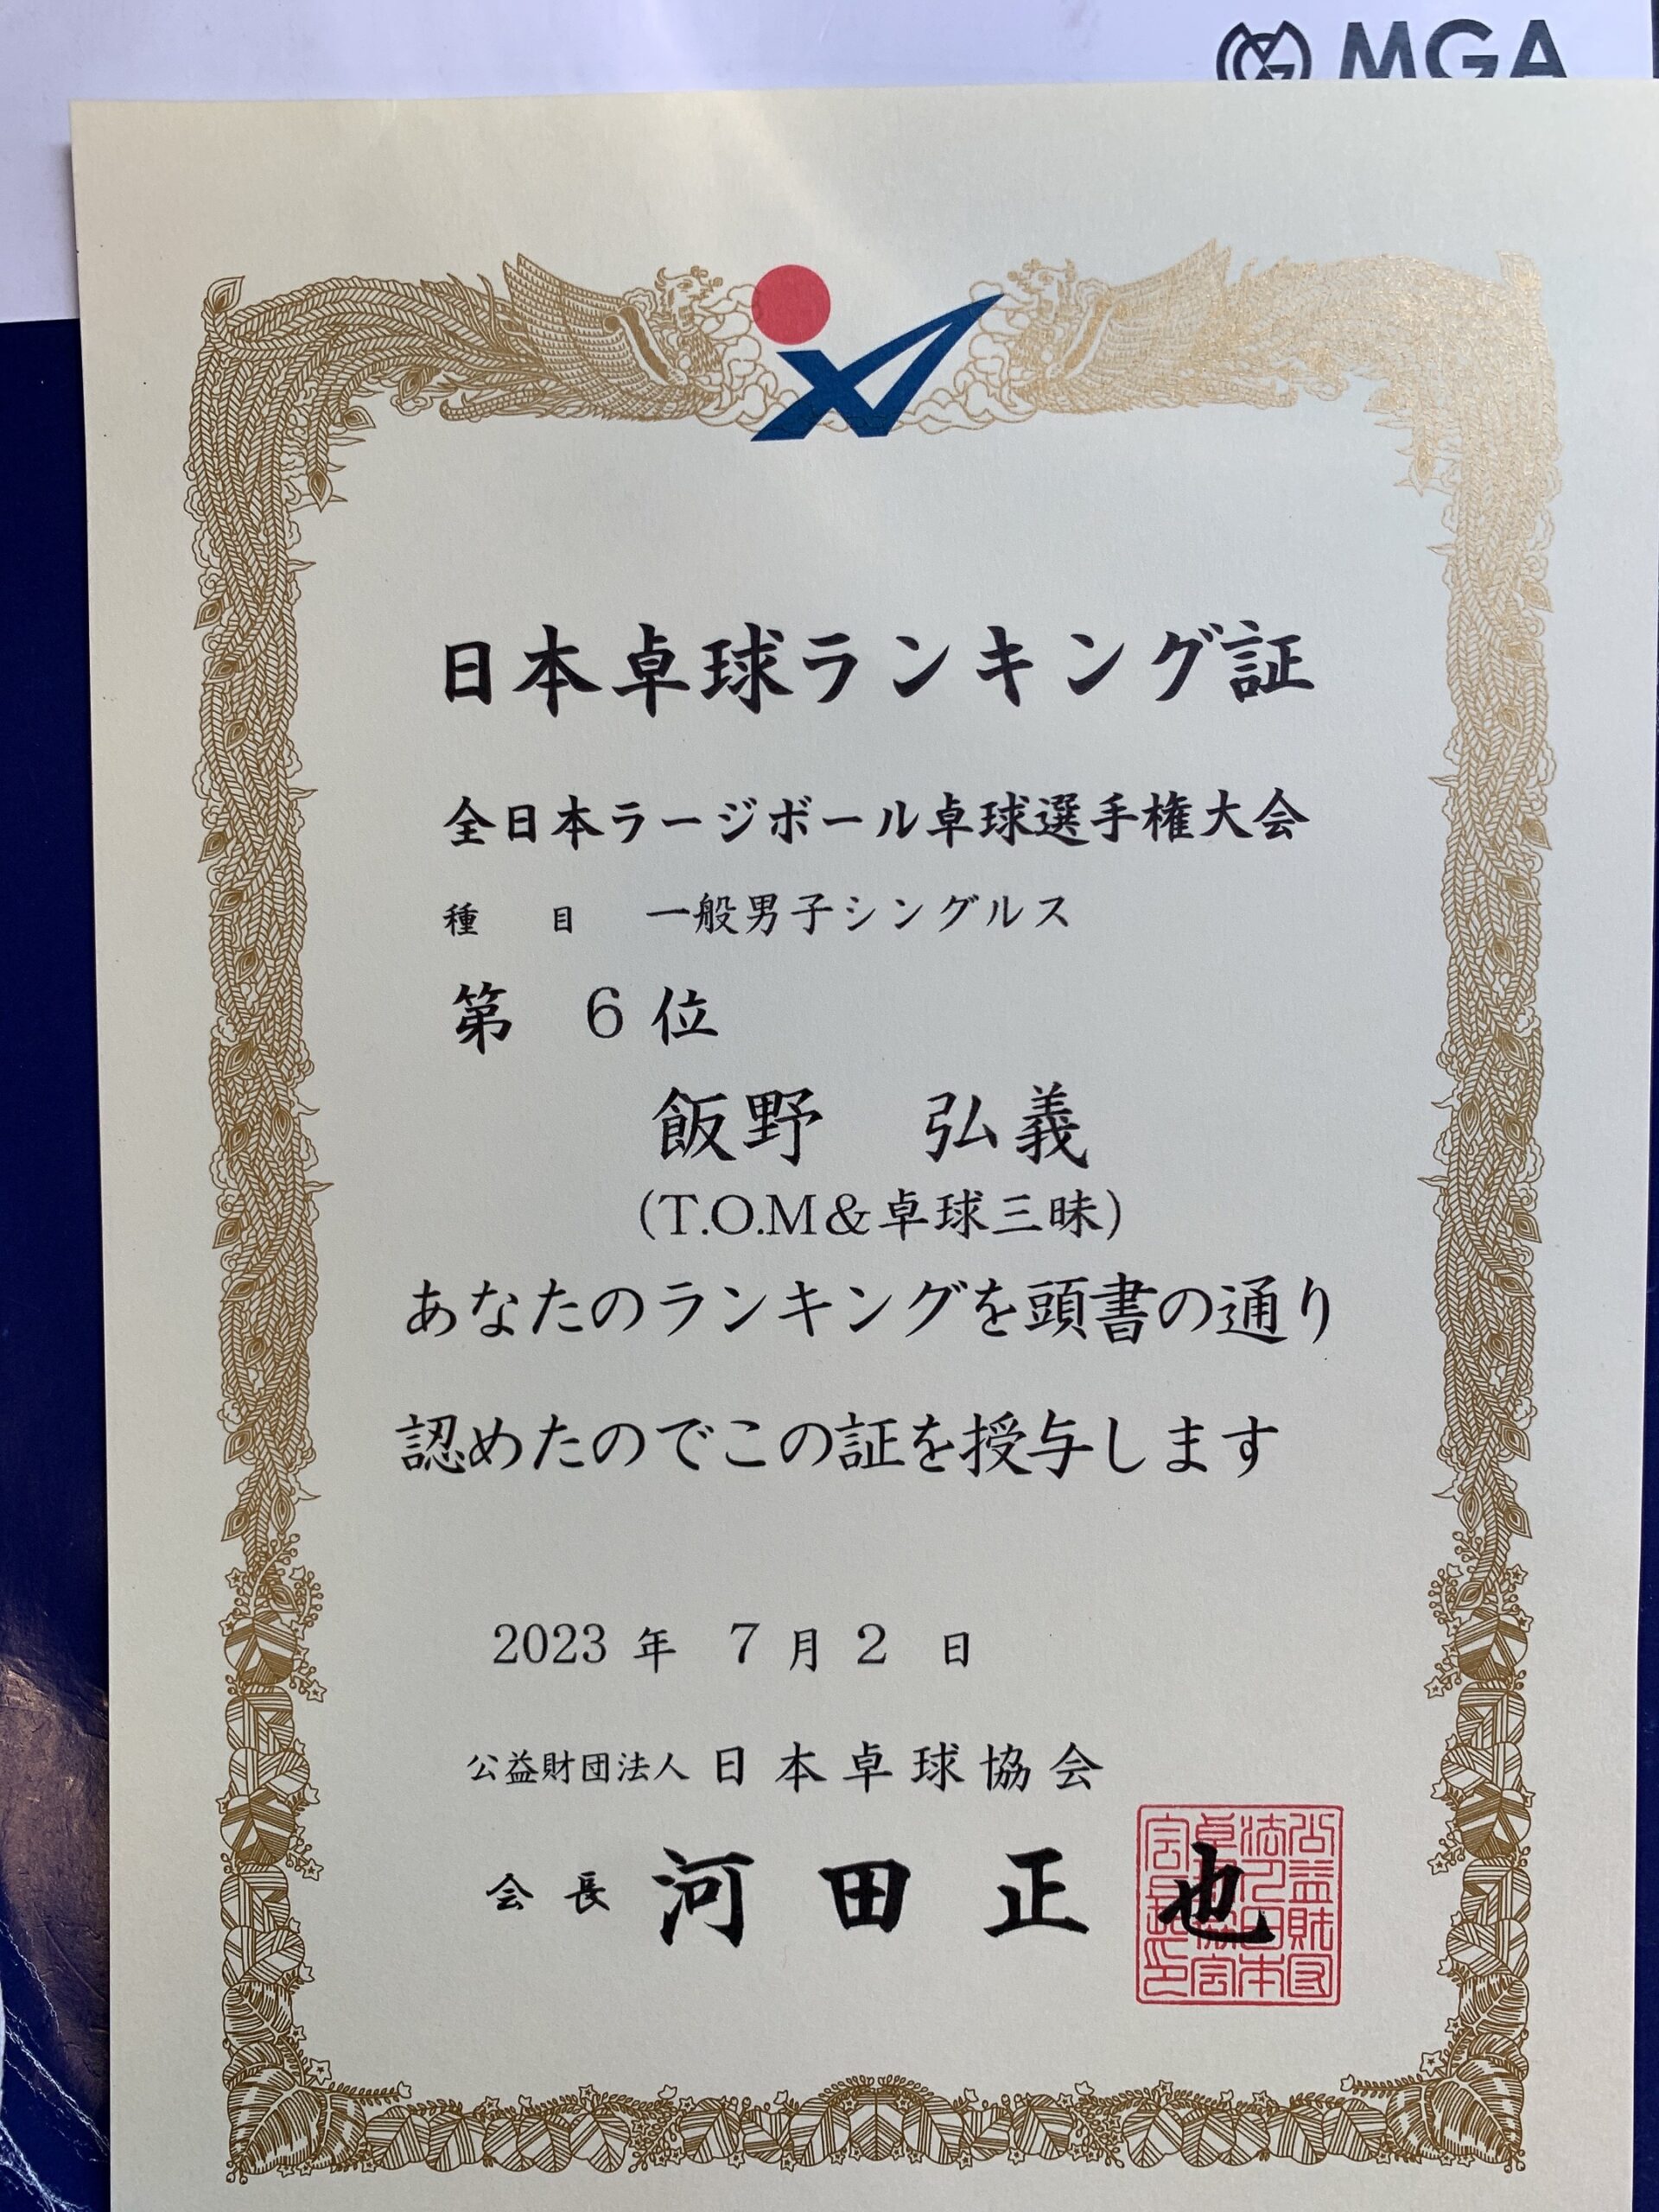 MGA
日本卓球ランキング証
全日本ラージボール卓球選手権大会
種 目 一般男子シングルス
第 6 位
飯野 弘義
(T.O.M&卓球三昧)
あなたのランキングを頭書の通り
認めたのでこの証を授与します
2023 年 7 月 2 日
公益財団法人 日本卓球協会
会長 河田正也
公益財団法人日本卓球協会会長印